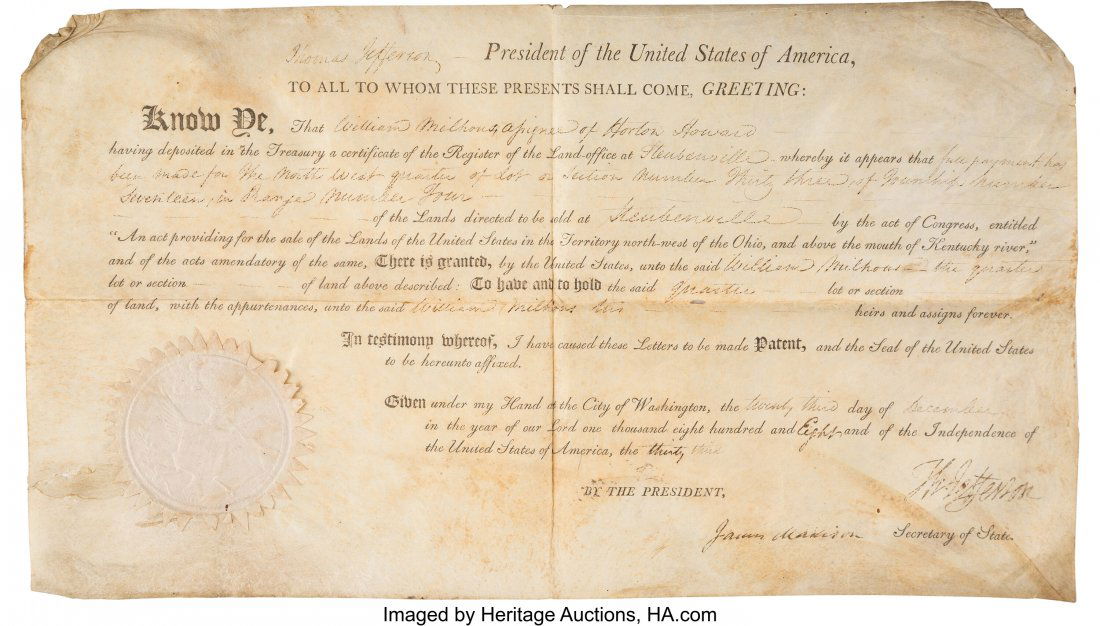 Thomas Jefferson, President of the United States of America,
TO ALL TO WHOM THESE PRESENTS SHALL COME, GREETING:
Know Ye, That William Milhous, assignee of Horton Howard
having deposited in the Treasury a certificate of the Register of the Land-office at Steubenville whereby it appears that full payment has
been made for the North West quarter of Lot or Section Number Thirty three, of Township Number
Seventeen, in Range Number Four
of the Lands directed to be sold at Steubenville by the act of Congress, entitled
“An act providing for the sale of the Lands of the United States in the Territory north-west of the Ohio, and above the mouth of Kentucky river,”
and of the acts amendatory of the same, There is granted, by the United States, unto the said William Milhous the quarter
lot or section of land above described: To have and to hold the said quarter lot or section
of land, with the appurtenances, unto the said William Milhous his heirs and assigns forever.
In testimony whereof, I have caused these Letters to be made Patent, and the Seal of the United States
to be hereunto affixed.
Given under my Hand at the City of Washington, the twenty third day of December
in the year of our Lord one thousand eight hundred and Eight and of the Independence of
the United States of America, the thirty third
Th Jefferson
BY THE PRESIDENT,
James Madison Secretary of State.
Imaged by Heritage Auctions, HA.com